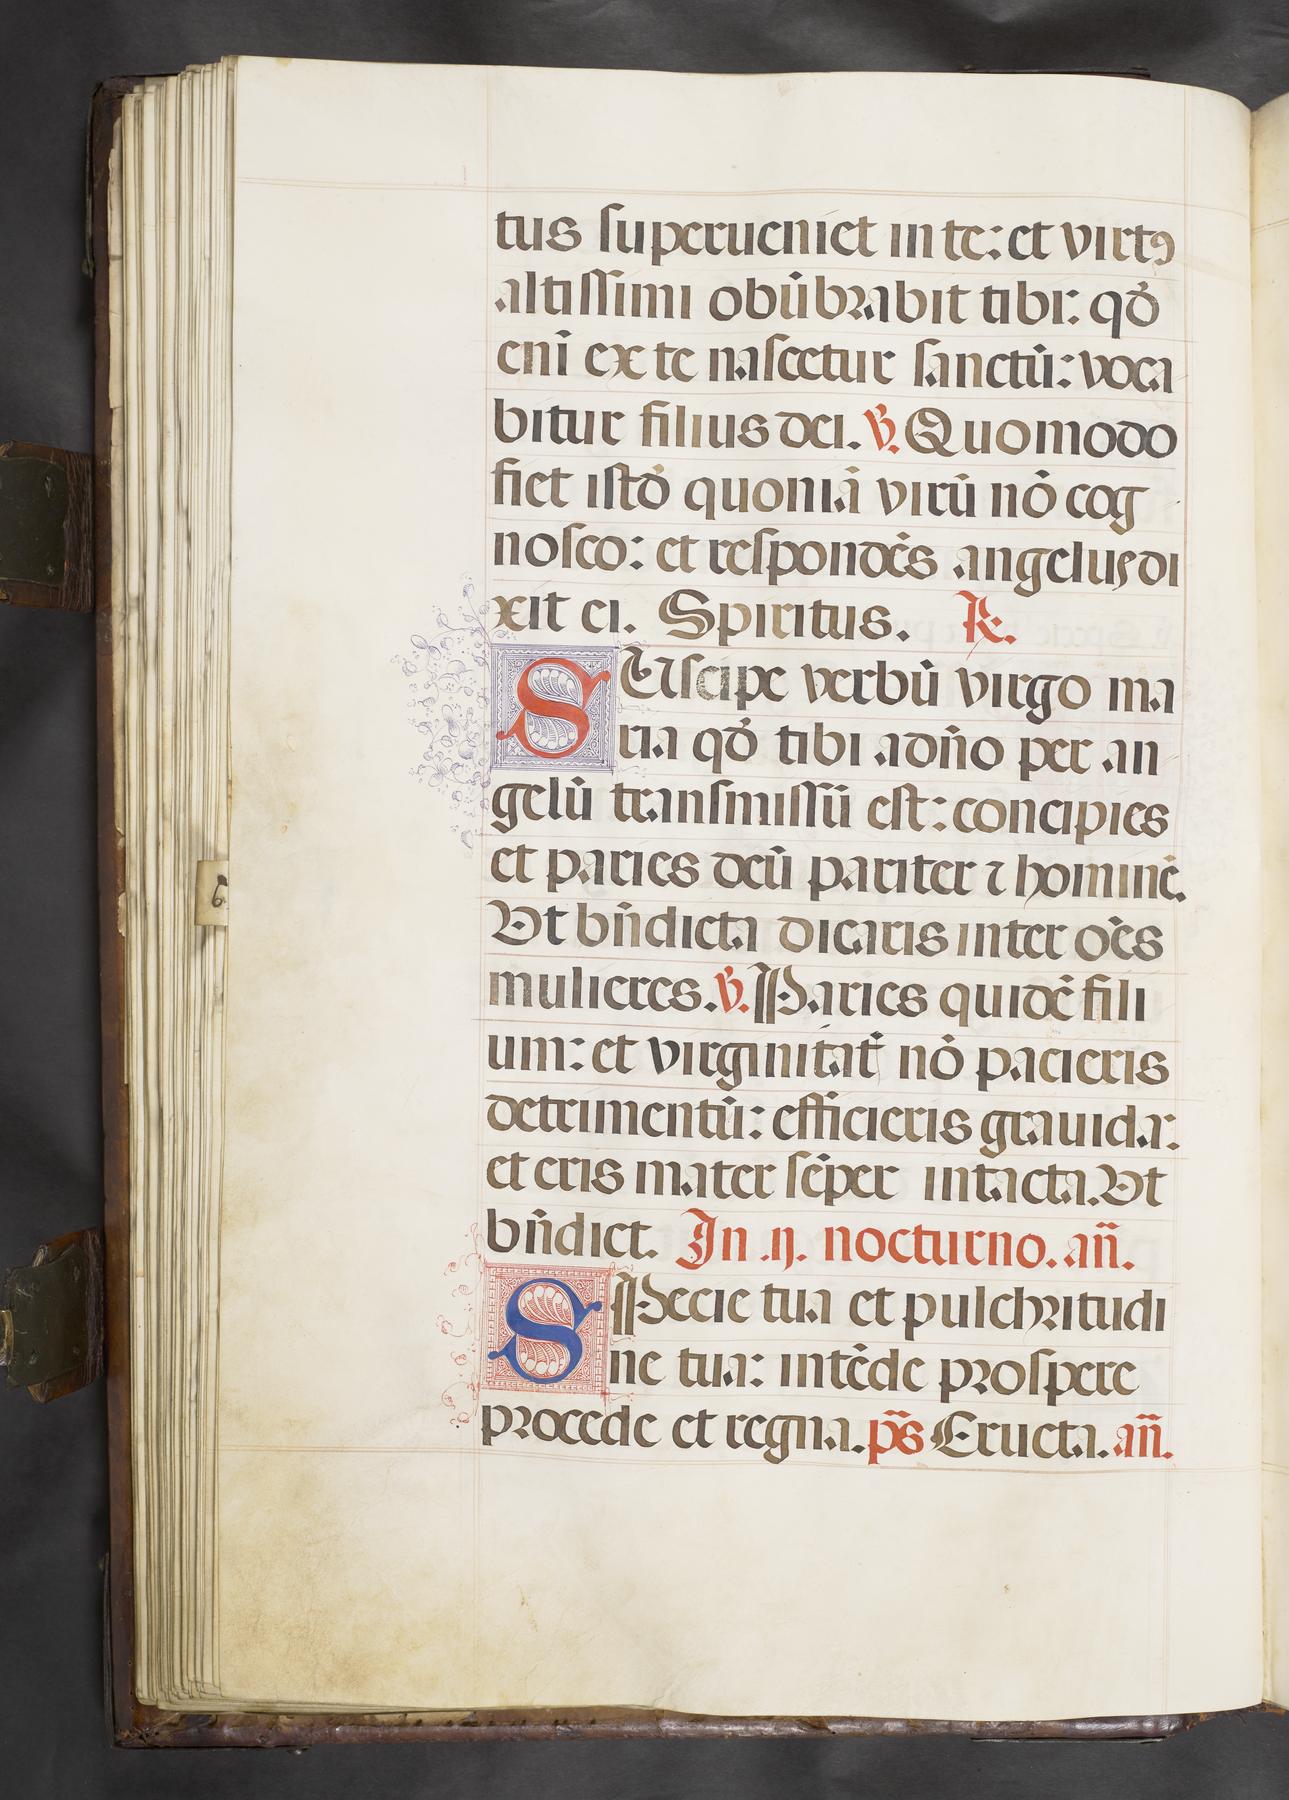 tus superueniet in te: et virtꝰ
altissimi obūbrabit tibi: qđ
enī ex te nascetur sanctū: voca
bitur filius dei. ℣. Quomodo
fiet istđ quoniā virū nō cog
nosco: et respondēs angelus di
xit ei. Spiritus. ℟.
SUscipe verbū virgo ma
ria qđ tibi a dño per an
gelū transmissū est: concipies
et paries deū pariter ⁊ hominē.
Vt bñdicta dicaris inter oēs
mulieres. ℣. Paries quidē fili
um: et virginitat̄ nō pacieris
detrimentū: efficieris grauida:
et eris mater sēper intacta. Vt
bñdict. In .ij. nocturno. añ.
SPecie tua et pulchritudi
ne tua: intēde prospere
procede et regna. p̄s Eructa. añ.
6